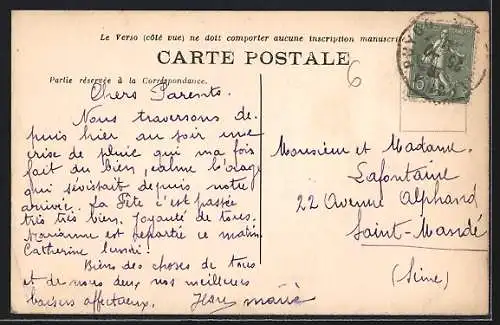 Le Verso (côté vue) ne doit comporter aucune inscription manuscrite
CARTE POSTALE
Partie réservée à la Correspondance.
6
Chers Parents.
Nous traversons de-
puis hier au soir une
crise de pluie qui ma fois
fait du bien, calme l'orage
qui sévissait depuis notre
arrivée. La Fête s'est passée
très très bien. Joyauté de tous.
Marianne est repartie ce matin
Catherine lundi.
Biens des choses de tous
et de nous deux nos meilleurs
baisers affectueux.
Marie
Monsieur et Madame.
Lafontaine
22 Avenue Alphand
Saint-Mandé
(Seine)